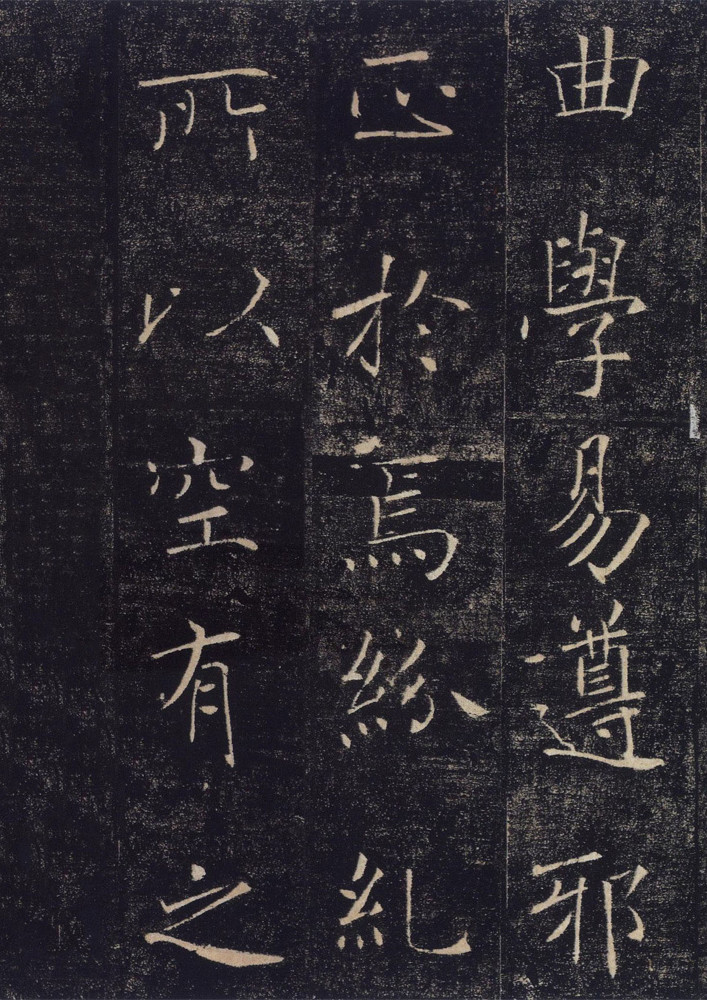 曲學易遵邪
正於焉紛糺
所以空有之